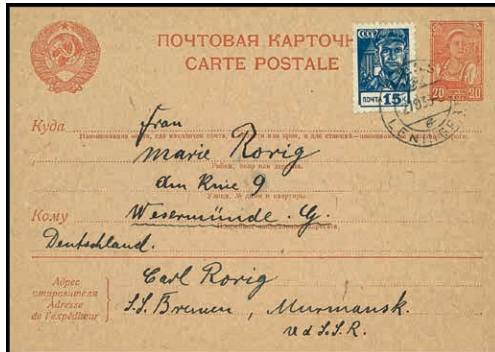 ПОЧТОВАЯ КАРТОЧК
CARTE POSTALE
СССР
ПОЧТА 15
20 20
LENINGRAD
Куда
Frau
Marie Rorig
Am Knie 9
Кому
Wesermünde. G.
Deutschland.
Адрес
отправителя
Adresse
de l'expéditeur
Carl Rorig
S.S. Bremen, Murmansk.
U.d.S.S.R.